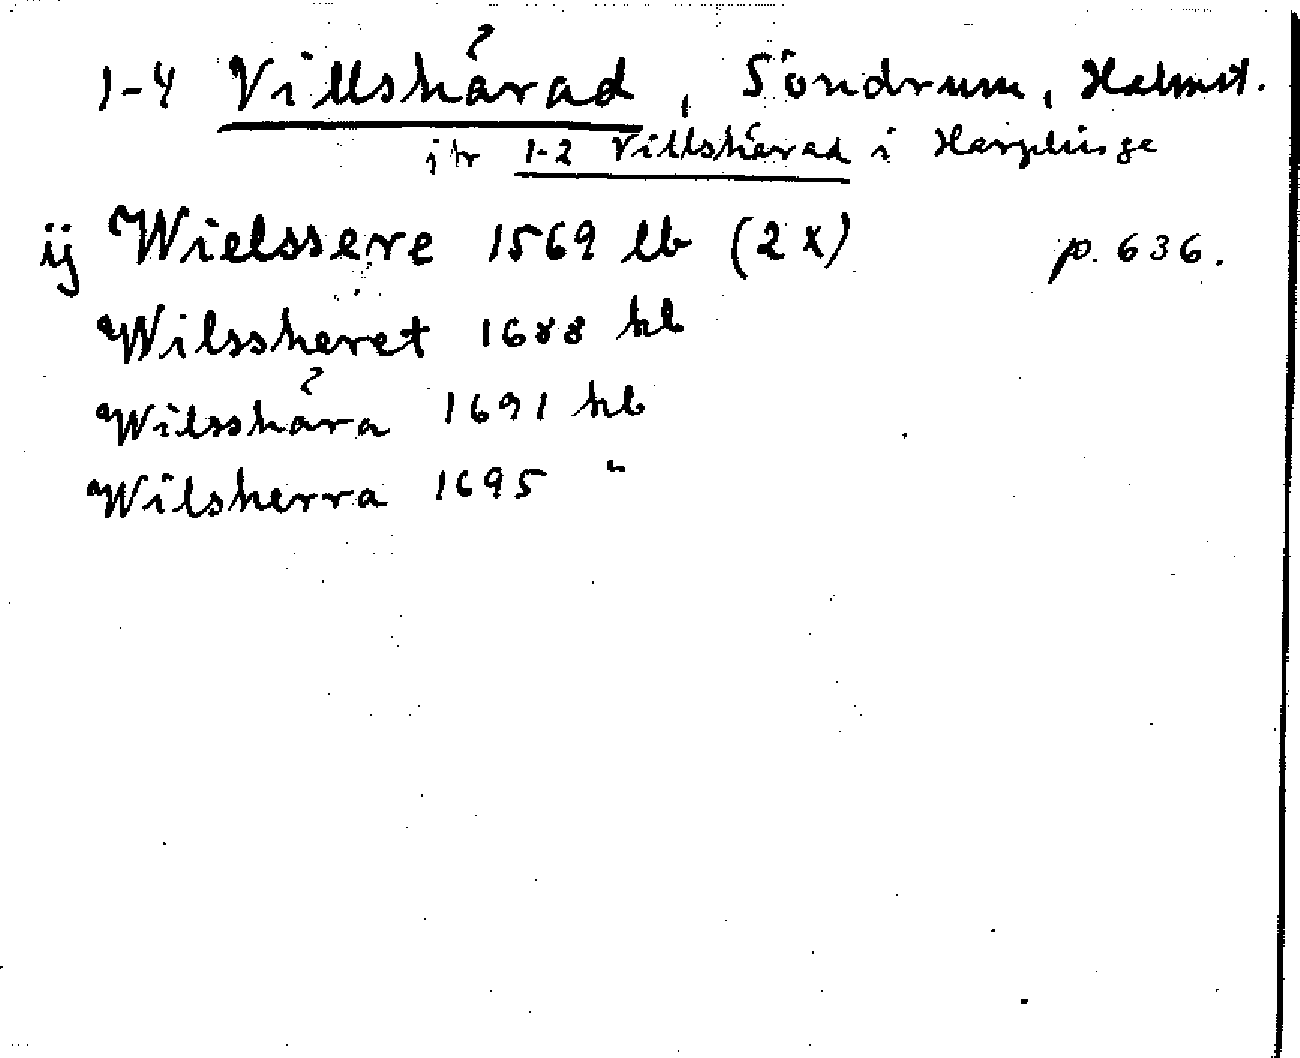 1-4 Villshärad, Söndrum, Halmst.
jfr 1-2 Villshärad i Harplinge
ij Wielssere 1569 lb (2 x) p. 636.
Wilssheret 1688 hl
Wilsshära 1691 hl
Wilsherra 1695 "